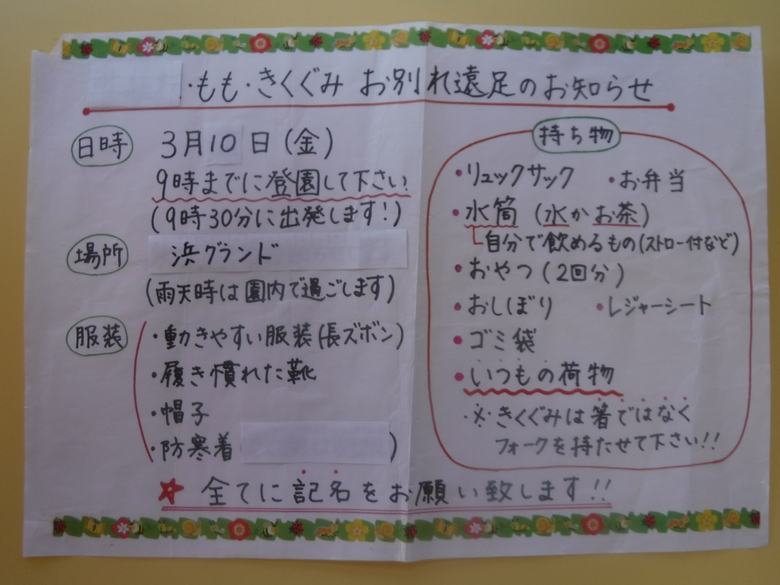 ・もも・きくぐみ お別れ遠足のお知らせ
日時 3月10日(金)
9時までに登園して下さい
(9時30分に出発します!)
場所 浜グランド
(雨天時は園内で過ごします)
服装 ・動きやすい服装(長ズボン)
・履き慣れた靴
・帽子
・防寒着 )
持ち物
・リュックサック ・お弁当
・水筒(水かお茶)
自分で飲めるもの(ストロー付など)
・おやつ(2回分)
・おしぼり ・レジャーシート
・ゴミ袋
・いつもの荷物
・※・きくぐみは箸ではなく
フォークを持たせて下さい!!
☆ 全てに記名をお願い致します!!